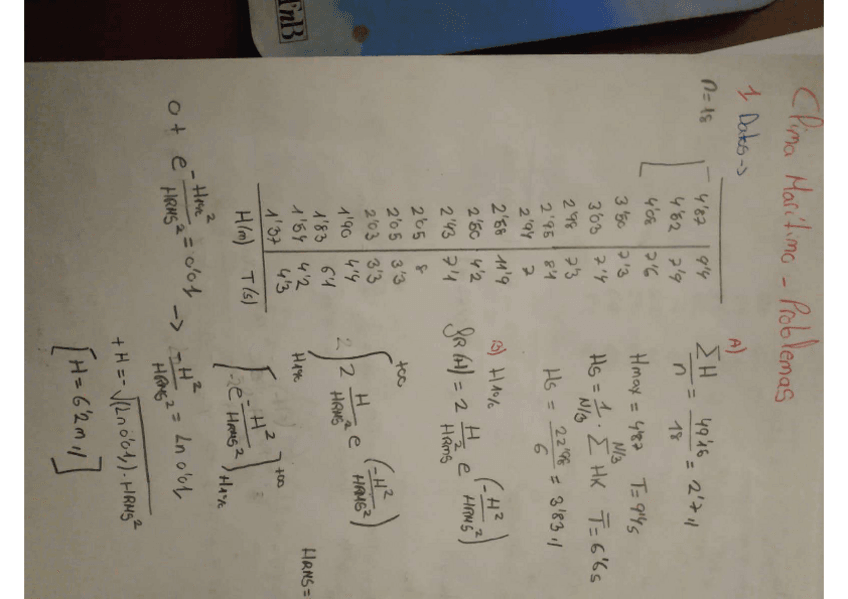 Clima Marítimo - Problemas
1 Datos ->
n=18
4'87 9'4
4'62 7'9
4'08 7'6
3'50 7'3
3'03 7'4
2'98 7'3
2'95 8'4
2'94 7
2'66 11'9
2'50 4'2
2'43 7'1
2'05 8
2'05 3'3
2'03 3'3
1'90 4'4
1'83 6'4
1'64 4'2
1'37 4'3
H(m) T(s)
A)
ΣH/n = 49'16/18 = 2'7,,
Hmax = 4'87 T=9'4s
Hs = 1/N/3 · Σ N/3 HK T̅=6'6s
Hs = 22'98/6 = 3'83,,
B) H1%
fR(H) = 2 H/HRMS² e^(-H²/HRMS²)
∫ H1% +∞ 2 H/HRMS² e^(-H²/HRMS²)
HRMS =
[-e^(-H²/HRMS²)] H1% +∞
0 + e^(-H1%²/HRMS²) = 0'01 -> -H²/HRMS² = Ln 0'01
+H = -√(Ln 0'01)·HRMS²
[H = 6'2m,,]
TnB